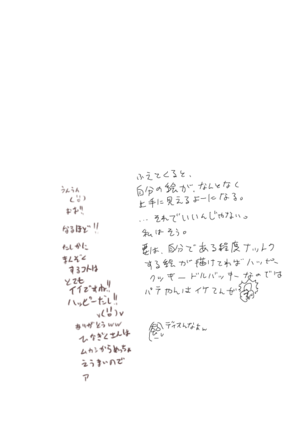 ふえてくると、
自分の絵が、なんとなく
上手に見えるよーになる。
…それでいいんじゃない。
私はそう。
要は、自分である程度ナットク
する絵が描けてればハッピー
クッキードルバッターなのでは
パテやんはイケてんぜ
ディスんなよん
うんうん
おお!!
なるほど!!
たしかに
まんぞく
するコトは
とても
イイですね!!
ハッピーだし!!
ありがとうww
ひなぎくさんは
ムカシからめっちゃ
えうまいので
ア